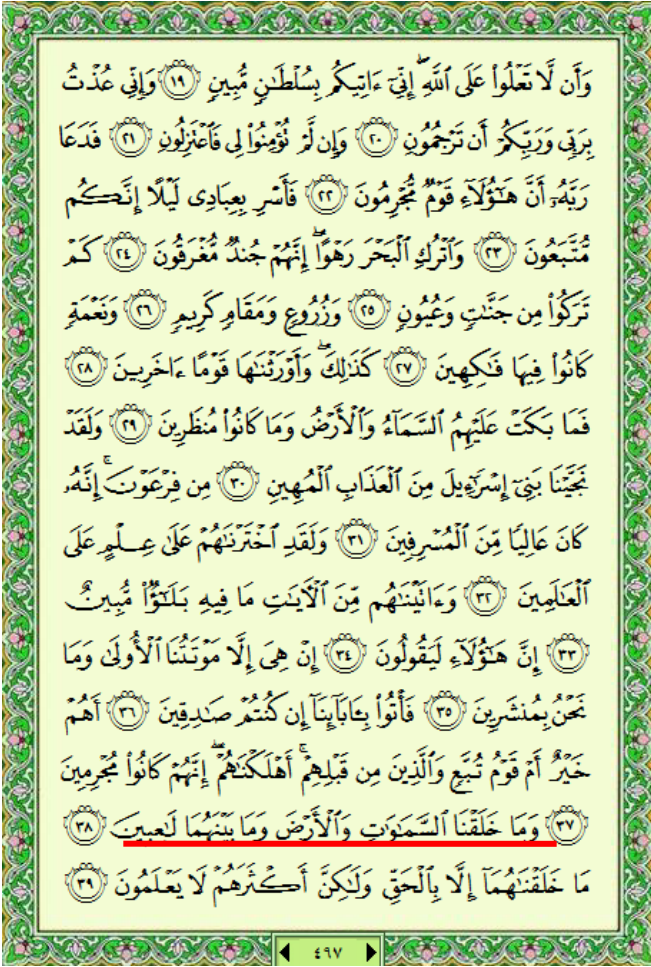 وَأَن لَّا تَعْلُوا۟ عَلَى ٱللَّهِ ۖ إِنِّىٓ ءَاتِيكُم بِسُلْطَـٰنٍ مُّبِينٍ ﴿١٩﴾ وَإِنِّى عُذْتُ
بِرَبِّى وَرَبِّكُمْ أَن تَرْجُمُونِ ﴿٢٠﴾ وَإِن لَّمْ تُؤْمِنُوا۟ لِى فَٱعْتَزِلُونِ ﴿٢١﴾ فَدَعَا
رَبَّهُۥٓ أَنَّ هَـٰٓؤُلَآءِ قَوْمٌ مُّجْرِمُونَ ﴿٢٢﴾ فَأَسْرِ بِعِبَادِى لَيْلًا إِنَّكُم
مُّتَّبَعُونَ ﴿٢٣﴾ وَٱتْرُكِ ٱلْبَحْرَ رَهْوًا ۖ إِنَّهُمْ جُندٌ مُّغْرَقُونَ ﴿٢٤﴾ كَمْ
تَرَكُوا۟ مِن جَنَّـٰتٍ وَعُيُونٍ ﴿٢٥﴾ وَزُرُوعٍ وَمَقَامٍ كَرِيمٍ ﴿٢٦﴾ وَنَعْمَةٍ
كَانُوا۟ فِيهَا فَـٰكِهِينَ ﴿٢٧﴾ كَذَٰلِكَ ۖ وَأَوْرَثْنَـٰهَا قَوْمًا ءَاخَرِينَ ﴿٢٨﴾
فَمَا بَكَتْ عَلَيْهِمُ ٱلسَّمَآءُ وَٱلْأَرْضُ وَمَا كَانُوا۟ مُنظَرِينَ ﴿٢٩﴾ وَلَقَدْ
نَجَّيْنَا بَنِىٓ إِسْرَٰٓءِيلَ مِنَ ٱلْعَذَابِ ٱلْمُهِينِ ﴿٣٠﴾ مِن فِرْعَوْنَ ۚ إِنَّهُۥ
كَانَ عَالِيًا مِّنَ ٱلْمُسْرِفِينَ ﴿٣١﴾ وَلَقَدِ ٱخْتَرْنَـٰهُمْ عَلَىٰ عِلْمٍ عَلَى
ٱلْعَـٰلَمِينَ ﴿٣٢﴾ وَءَاتَيْنَـٰهُم مِّنَ ٱلْـَٔايَـٰتِ مَا فِيهِ بَلَـٰٓؤٌا۟ مُّبِينٌ
﴿٣٣﴾ إِنَّ هَـٰٓؤُلَآءِ لَيَقُولُونَ ﴿٣٤﴾ إِنْ هِىَ إِلَّا مَوْتَتُنَا ٱلْأُولَىٰ وَمَا
نَحْنُ بِمُنشَرِينَ ﴿٣٥﴾ فَأْتُوا۟ بِـَٔابَآئِنَآ إِن كُنتُمْ صَـٰدِقِينَ ﴿٣٦﴾ أَهُمْ
خَيْرٌ أَمْ قَوْمُ تُبَّعٍ وَٱلَّذِينَ مِن قَبْلِهِمْ ۚ أَهْلَكْنَـٰهُمْ ۖ إِنَّهُمْ كَانُوا۟ مُجْرِمِينَ
﴿٣٧﴾ وَمَا خَلَقْنَا ٱلسَّمَـٰوَٰتِ وَٱلْأَرْضَ وَمَا بَيْنَهُمَا لَـٰعِبِينَ ﴿٣٨﴾
مَا خَلَقْنَـٰهُمَآ إِلَّا بِٱلْحَقِّ وَلَـٰكِنَّ أَكْثَرَهُمْ لَا يَعْلَمُونَ ﴿٣٩﴾
٤٩٧